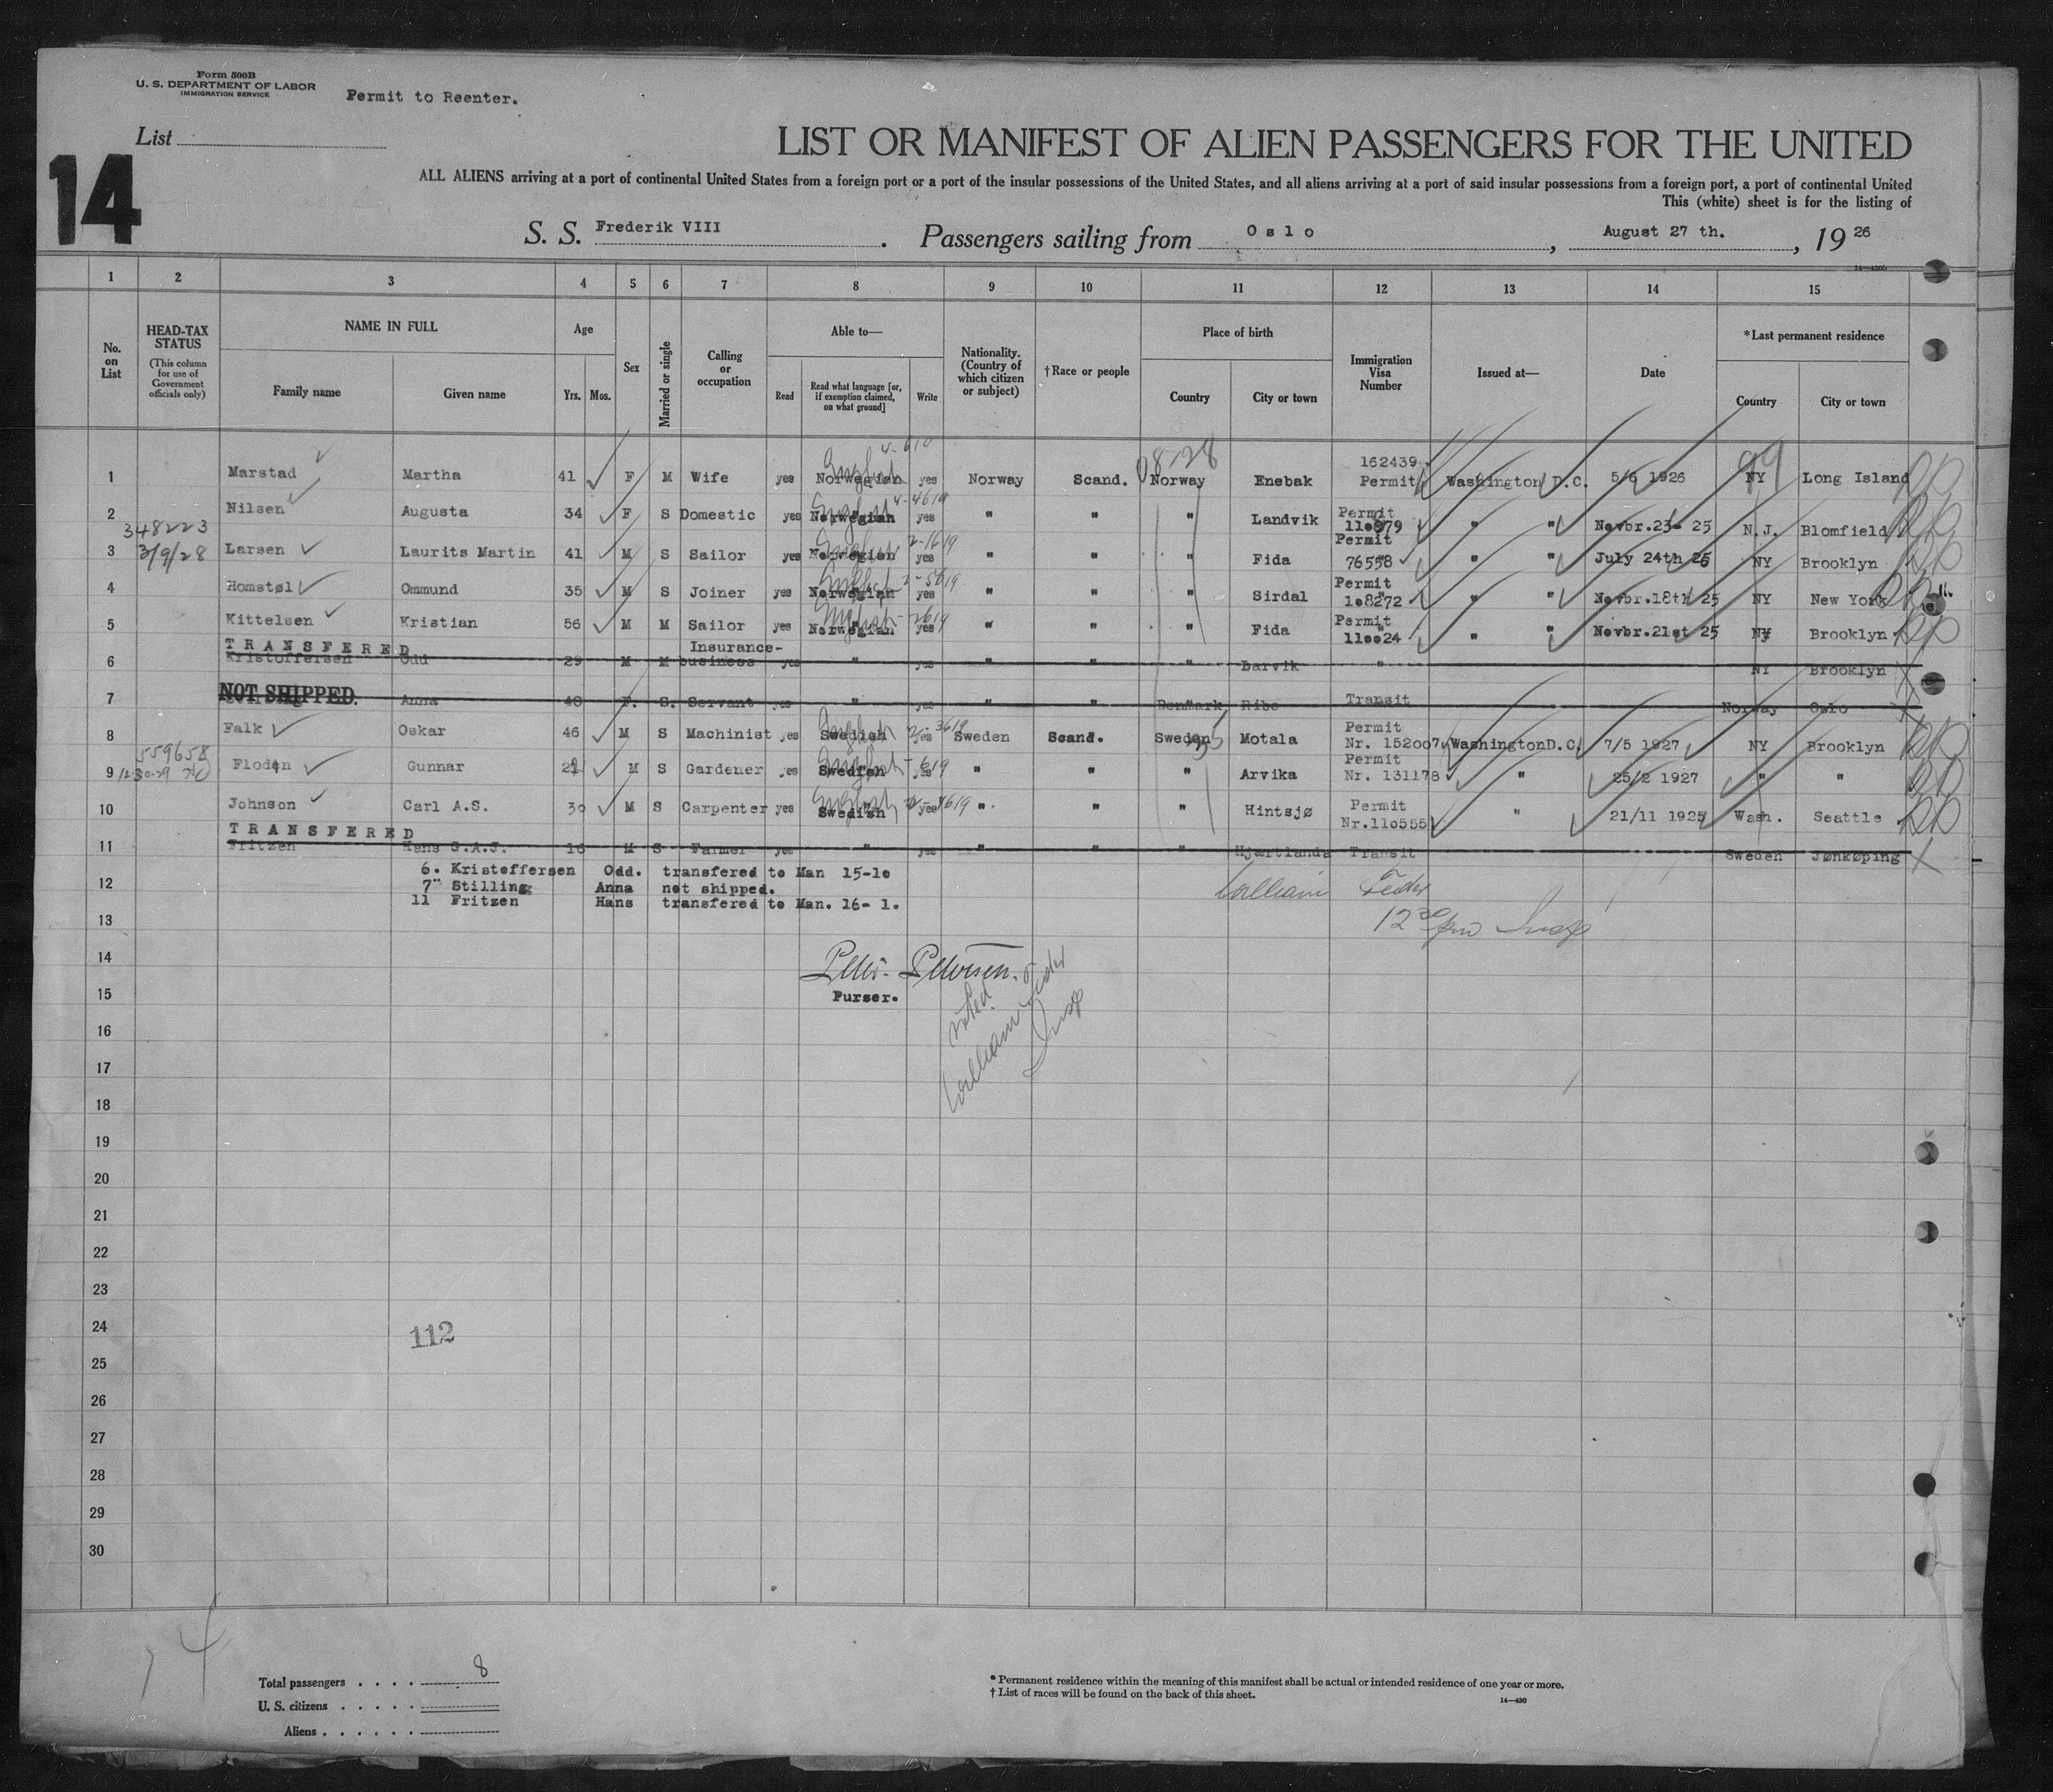 Form 500B
U. S. DEPARTMENT OF LABOR
IMMIGRATION SERVICE
Permit to Reenter.
List
14
LIST OR MANIFEST OF ALIEN PASSENGERS FOR THE UNITED
ALL ALIENS arriving at a port of continental United States from a foreign port or a port of the insular possessions of the United States, and all aliens arriving at a port of said insular possessions from a foreign port, a port of continental United
This (white) sheet is for the listing of
S. S. Frederik VIII . Passengers sailing from Oslo , August 27 th. , 19 26
14—430b
1 2 3 4 5 6 7 8 9 10 11 12 13 14 15
No. on List
HEAD-TAX STATUS (This column for use of Government officials only)
NAME IN FULL Family name Given name
Age Yrs. Mos.
Sex
Married or single
Calling or occupation
Able to— Read Read what language [or, if exemption claimed, on what ground] Write
Nationality. (Country of which citizen or subject)
†Race or people
Place of birth Country City or town
Immigration Visa Number
Issued at—
Date
*Last permanent residence Country City or town
08128 99
1 Marstad Martha 41 F M Wife yes Norwegian English yes Norway Scand. Norway Enebak 162439 Permit Washington D.C. 5/6 1926 NY Long Island
2 Nilsen Augusta 34 F S Domestic yes Norwegian English yes " " " Landvik Permit 11o979 " " Novbr. 23- 25 N.J. Blomfield
348223
3 3/9/28 Larsen Laurits Martin 41 M S Sailor yes Norwegian English yes " " " Fida Permit 76558 " " July 24th 25 NY Brooklyn
4 Homstøl Ommund 35 M S Joiner yes Norwegian English yes " " " Sirdal Permit 1o8272 " " Novbr.18th 25 NY New York
5 Kittelsen Kristian 56 M M Sailor yes Norwegian English yes " " " Fida Permit 11oo24 " " Novbr.21st 25 NY Brooklyn
TRANSFERED
6 Kristoffersen Odd 29 M M Insurance-business yes " yes " " " Larvik " NY Brooklyn
NOT SHIPPED.
7 Anna 40 F. S. Servant yes " yes " " Denmark Ribe Transit Norway Oslo
8 Falk Oskar 46 M S Machinist yes Swedish English yes Sweden Scand. Sweden Motala Permit Nr. 152oo7 Washington D.C. 7/5 1927 NY Brooklyn
559658
9 12-30-29 Floden Gunnar 21 M S Gardener yes Swedish English yes " " " Arvika Permit Nr. 131178 " 25/2 1927 " "
10 Johnson Carl A.S. 3o M S Carpenter yes Swedish English yes " " " Hintsjø Permit Nr.11o555 " 21/11 1925 Wash. Seattle
TRANSFERED
11 Fritzen Hans G.A.J. 16 M S Farmer yes " yes " " " Hjærtlanda Transit Sweden Jønkøping
6. Kristoffersen Odd. transfered to Man 15-1o
12 7" Stilling Anna not shipped.
11 Fritzen Hans transfered to Man. 16- 1.
William Feder
12 30 pm Insp
13
14 Peter Petersen.
15 Purser.
William Feder
Insp
16
17
18
19
20
21
22
23
24
112
25
26
27
28
29
30
14
Total passengers . . . . 8
U. S. citizens . . . . .
Aliens . . . . . .
* Permanent residence within the meaning of this manifest shall be actual or intended residence of one year or more.
† List of races will be found on the back of this sheet.
14—430